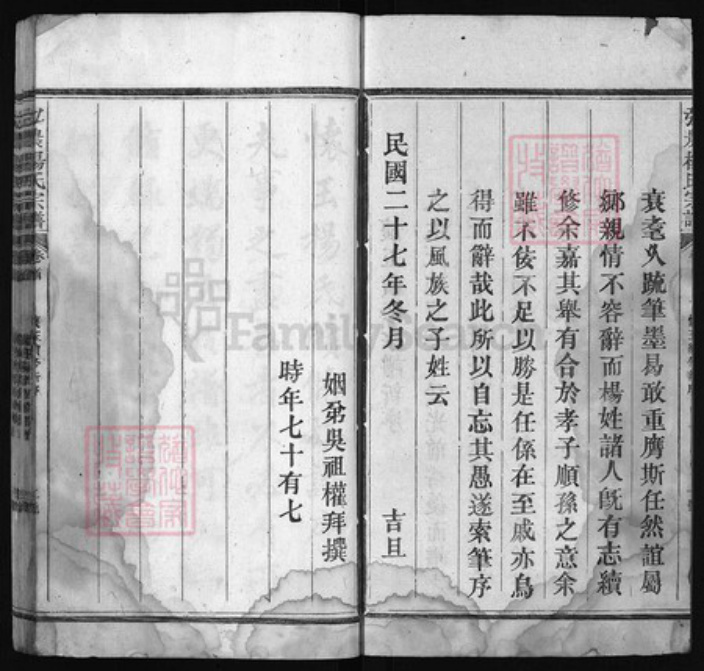 衰耄久疏筆墨曷敢重膺斯任然誼屬
鄉親情不容辭而楊姓諸人既有志續
修余嘉其舉有合於孝子順孫之意余
雖不佞不足以勝是任係在至戚亦烏
得而辭哉此所以自忘其愚遂索筆序
之以風族之子姓云
民國二十七年冬月 吉旦
姻弟吳祖權拜撰
時年七十有七
楊氏宗譜 卷首
FamilySearch